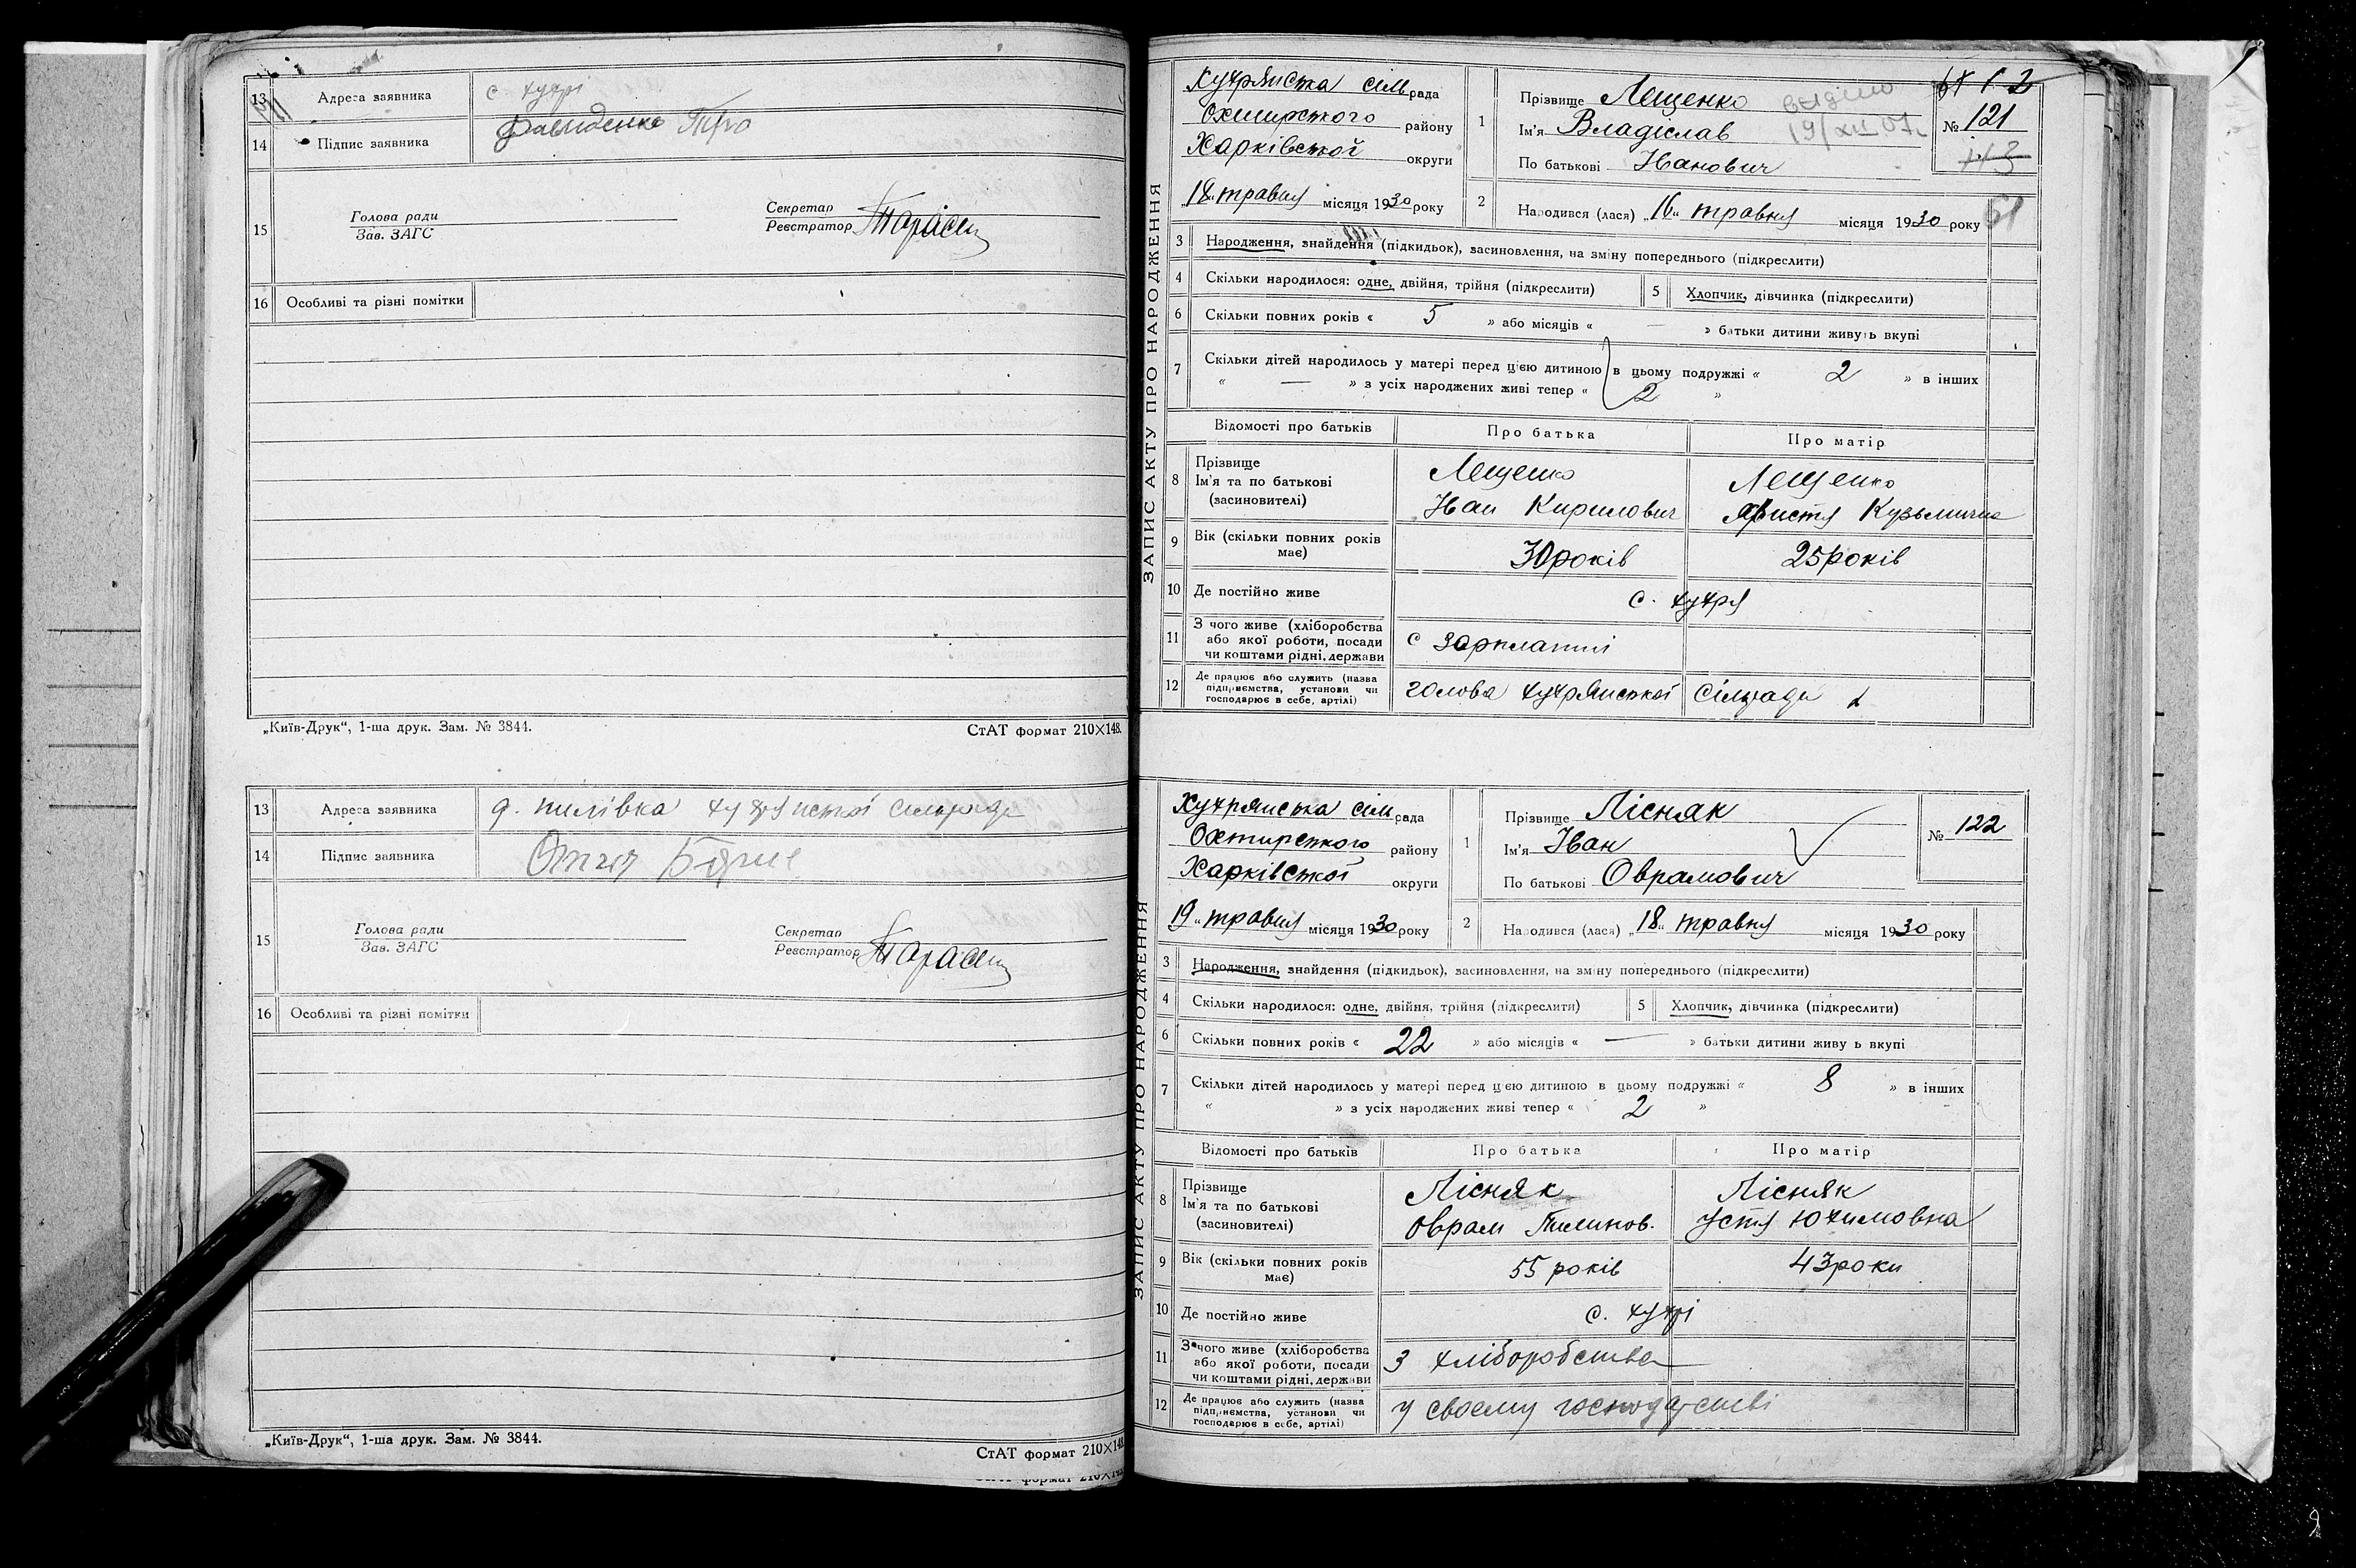 13 Адреса заявника с. хухрі
14 Підпис заявника Давиденко
15 Голова ради
Зав. ЗАГС
Секретар
Реєстратор
16 Особливі та різні помітки
„Київ-Друк“, 1-ша друк. Зам. № 3844.
СтАТ формат 210×148.
13 Адреса заявника д. пилівка хухрянської сільради
14 Підпис заявника
15 Голова ради
Зав. ЗАГС
Секретар
Реєстратор
16 Особливі та різні помітки
„Київ-Друк“, 1-ша друк. Зам. № 3844.
СтАТ формат 210×148
ЗАПИС АКТУ ПРО НАРОДЖЕННЯ
Хухрянська сільрада
Охтирського району
Харківської округи
„18“ травня місяця 1930 року
1 Прізвище Лещенко
Ім'я Владіслав
По батькові Іванович
видано
19/XII 07г.
№ 121
113
51
2 Народився (лася) „16“ травня місяця 1930 року
3 Народження, знайдення (підкидьок), засиновлення, на зміну попереднього (підкреслити)
4 Скільки народилося: одне, двійня, трійня (підкреслити)
5 Хлопчик, дівчинка (підкреслити)
6 Скільки повних років « 5 » або місяців « — » батьки дитини живуть вкупі
7 Скільки дітей народилось у матері перед цією дитиною в цьому подружжі « 2 » в інших
« — » з усіх народжених живі тепер « 2 »
Відомості про батьків Про батька Про матір
8 Прізвище
Ім'я та по батькові
(засиновителі)
Лещенко
Іван Кирилович
Лещенко
Христя Кузьмична
9 Вік (скільки повних років має) 30 років 25 років
10 Де постійно живе с. хухря
11 З чого живе (хліборобства
або якої роботи, посади
чи коштами рідні, держави
с зарплатні
12 Де працює або служить (назва
підприємства, установи чи
господарює в себе, артілі)
голова хухрянської сільради
ЗАПИС АКТУ ПРО НАРОДЖЕННЯ
Хухрянська сільрада
Охтирського району
Харківської округи
19 „травня місяця 1930 року
1 Прізвище Лісняк
Ім'я Іван
По батькові Оврамович
№ 122
2 Народився (лася) „18“ травня місяця 1930 року
3 Народження, знайдення (підкидьок), засиновлення, на зміну попереднього (підкреслити)
4 Скільки народилося: одне, двійня, трійня (підкреслити)
5 Хлопчик, дівчинка (підкреслити)
6 Скільки повних років « 22 » або місяців « — » батьки дитини живу ь вкупі
7 Скільки дітей народилось у матері перед цією дитиною в цьому подружжі « 8 » в інших
« » з усіх народжених живі тепер « 2 »
Відомості про батьків Про батька Про матір
8 Прізвище
Ім'я та по батькові
(засиновителі)
Лісняк
Оврам Тилимов.
Лісняк
Устя Юхимовна
9 Вік (скільки повних років має) 55 років 43 роки
10 Де постійно живе с. хухрі
11 З чого живе (хліборобства
або якої роботи, посади
чи коштами рідні, держави
З хліборобства
12 Де працює або служить (назва
підприємства, установи чи
господарює в себе, артілі)
у своєму господарстві